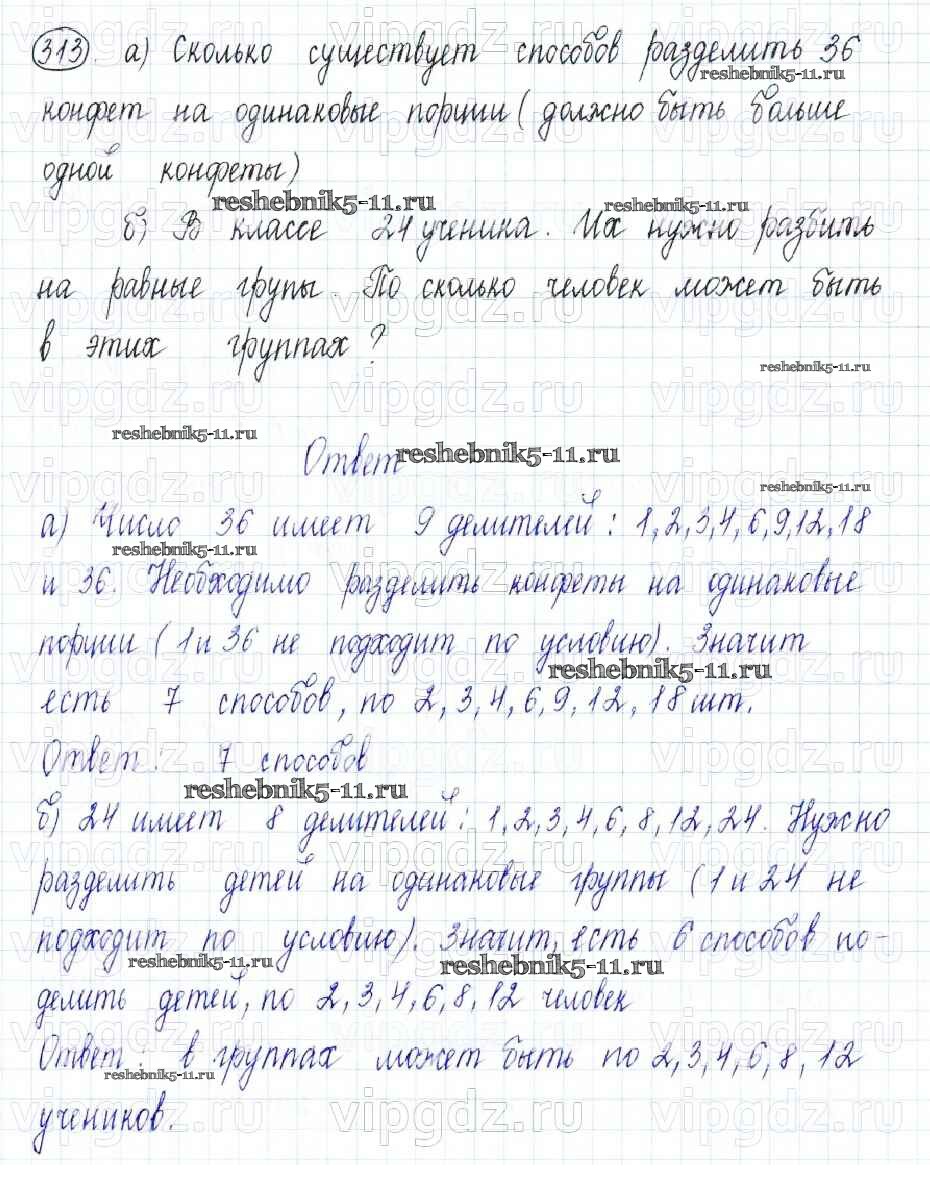 313. а) Сколько существует способов разделить 36
reshebnik5-11.ru
конфет на одинаковые порции (должно быть больше
одной конфеты)
reshebnik5-11.ru
reshebnik5-11.ru
б) В классе 24 ученика. Их нужно разбить
на равные групы. По сколько человек может быть
в этих группах?
reshebnik5-11.ru
reshebnik5-11.ru
Ответ
reshebnik5-11.ru
reshebnik5-11.ru
а) Число 36 имеет 9 делителей: 1,2,3,4,6,9,12,18
reshebnik5-11.ru
и 36. Необходимо разделить конфеты на одинаковые
порции (1 и 36 не подходит по условию). Значит
reshebnik5-11.ru
есть 7 способов, по 2,3,4,6,9,12,18 шт.
Ответ: 7 способов
reshebnik5-11.ru
б) 24 имеет 8 делителей: 1,2,3,4,6,8,12,24. Нужно
разделить детей на одинаковые группы (1 и 24 не
подходит по условию). Значит, есть 6 способов по-
reshebnik5-11.ru
reshebnik5-11.ru
делить детей, по 2,3,4,6,8,12 человек
Ответ: в группах может быть по 2,3,4,6,8,12
reshebnik5-11.ru
учеников.
vipgdz.ru